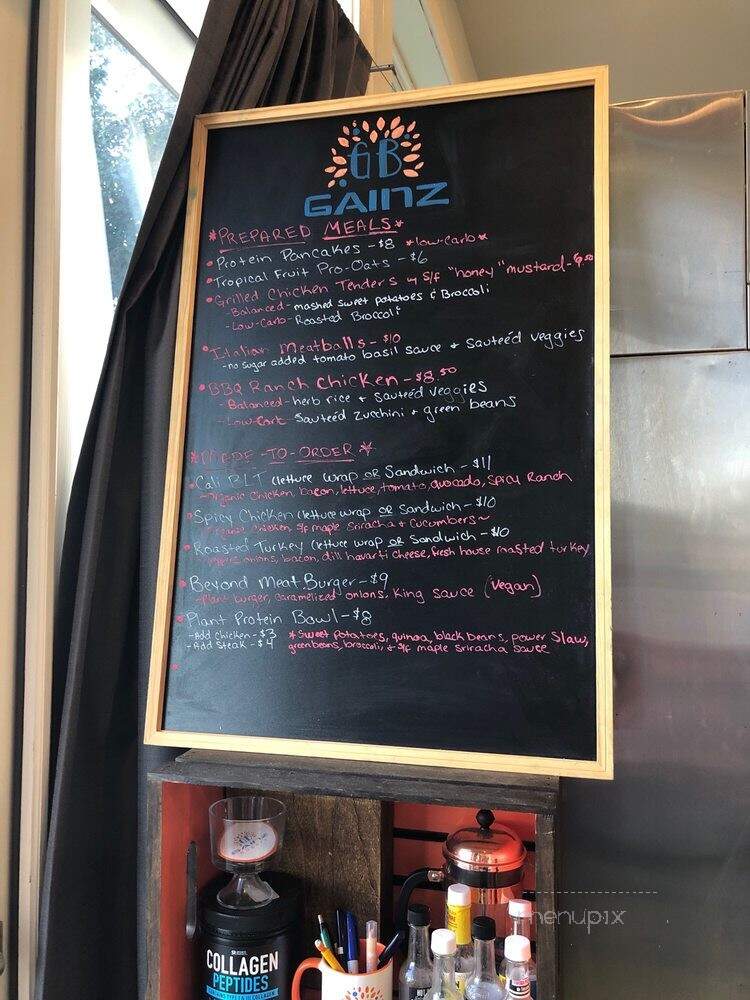 GB
GAINZ
*PREPARED MEALS*
• Protein Pancakes - $8 *low-carb*
• Tropical Fruit Pro-Oats - $6
• Grilled Chicken Tenders w/ s/f "honey" mustard -
- Balanced - mashed sweet potatoes & Broccoli
- Low-Carb - Roasted Broccoli
• Italian Meatballs - $10
- no sugar added tomato basil sauce + Sauteéd veggies
• BBQ Ranch Chicken - $8.50
- Balanced - herb rice + Sauteéd veggies
- Low-Carb Sauteéd Zucchini + green beans
*MADE-TO-ORDER*
• Cali BLT (lettuce wrap OR Sandwich - $11
- Organic Chicken, bacon, lettuce, tomato, avocado, Spicy Ranch
• Spicy Chicken (lettuce wrap OR Sandwich - $10
Chicken, s/f maple Sriracha + Cucumbers~
• Roasted Turkey (lettuce wrap OR Sandwich - $10
onions, bacon, dill havarti cheese, fresh house roasted turkey
• Beyond Meat Burger - $9
- Plant burger, caramelized onions, King Sauce (Vegan)
• Plant Protein Bowl - $8
- Add Chicken - $3 *Sweet Potatoes, quinoa, black beans, power Slaw,
- Add Steak - $4 green beans, broccoli, + s/f maple sriracha sauce
COLLAGEN
PEPTIDES
menupix